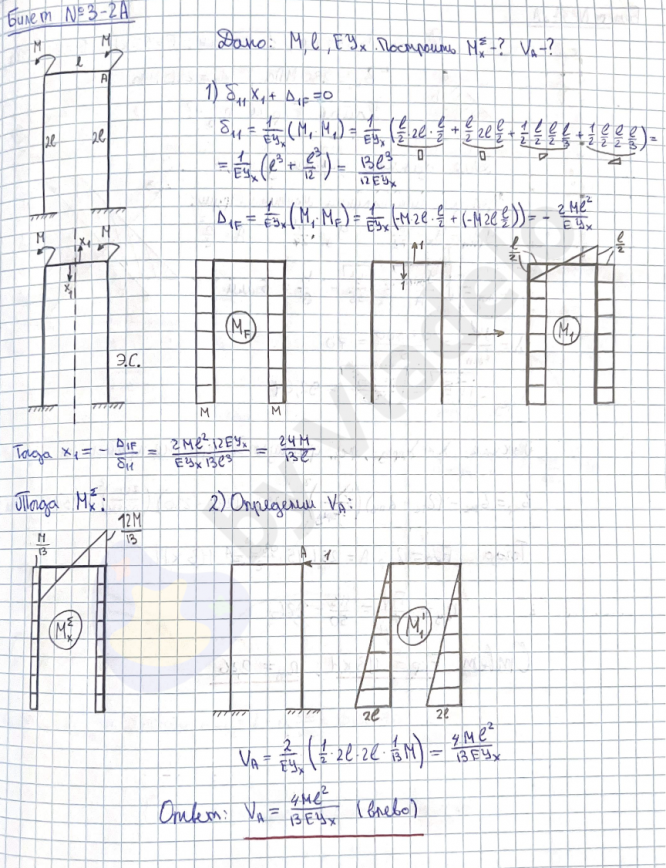 Билет №3-2А
M M
l
A
2l 2l
Дано: M, l, EYx. Построить Mx^Σ-? VA-?
1) δ11 X1 + Δ1F = 0
δ11 = 1/EYx (M1·M1) = 1/EYx (l/2·2l·l/2 + l/2 2l l/2 + 1/2 l/2 l/2 l/3 + 1/2 l/2 l/2 l/3) =
= 1/EYx (l³ + l³/12) = 13l³/12EYx
Δ1F = 1/EYx (M1·MF) = 1/EYx (-M2l·l/2 + (-M2l l/2)) = - 2Ml²/EYx
M X1 M
X1
Э.С.
MF
M M
1
1
l/2 l/2
M1
Тогда x1 = - Δ1F/δ11 = 2Ml²·12EYx/EYx 13l³ = 24M/13l
Тогда Mx^Σ:
2) Определим VA:
M/13 12M/13
Mx^Σ
A 1
M1'
2l 2l
VA = 2/EYx (1/2·2l·2l·1/13 M) = 4Ml²/13EYx
Ответ: VA = 4Ml²/13EYx (влево)
by Vladek